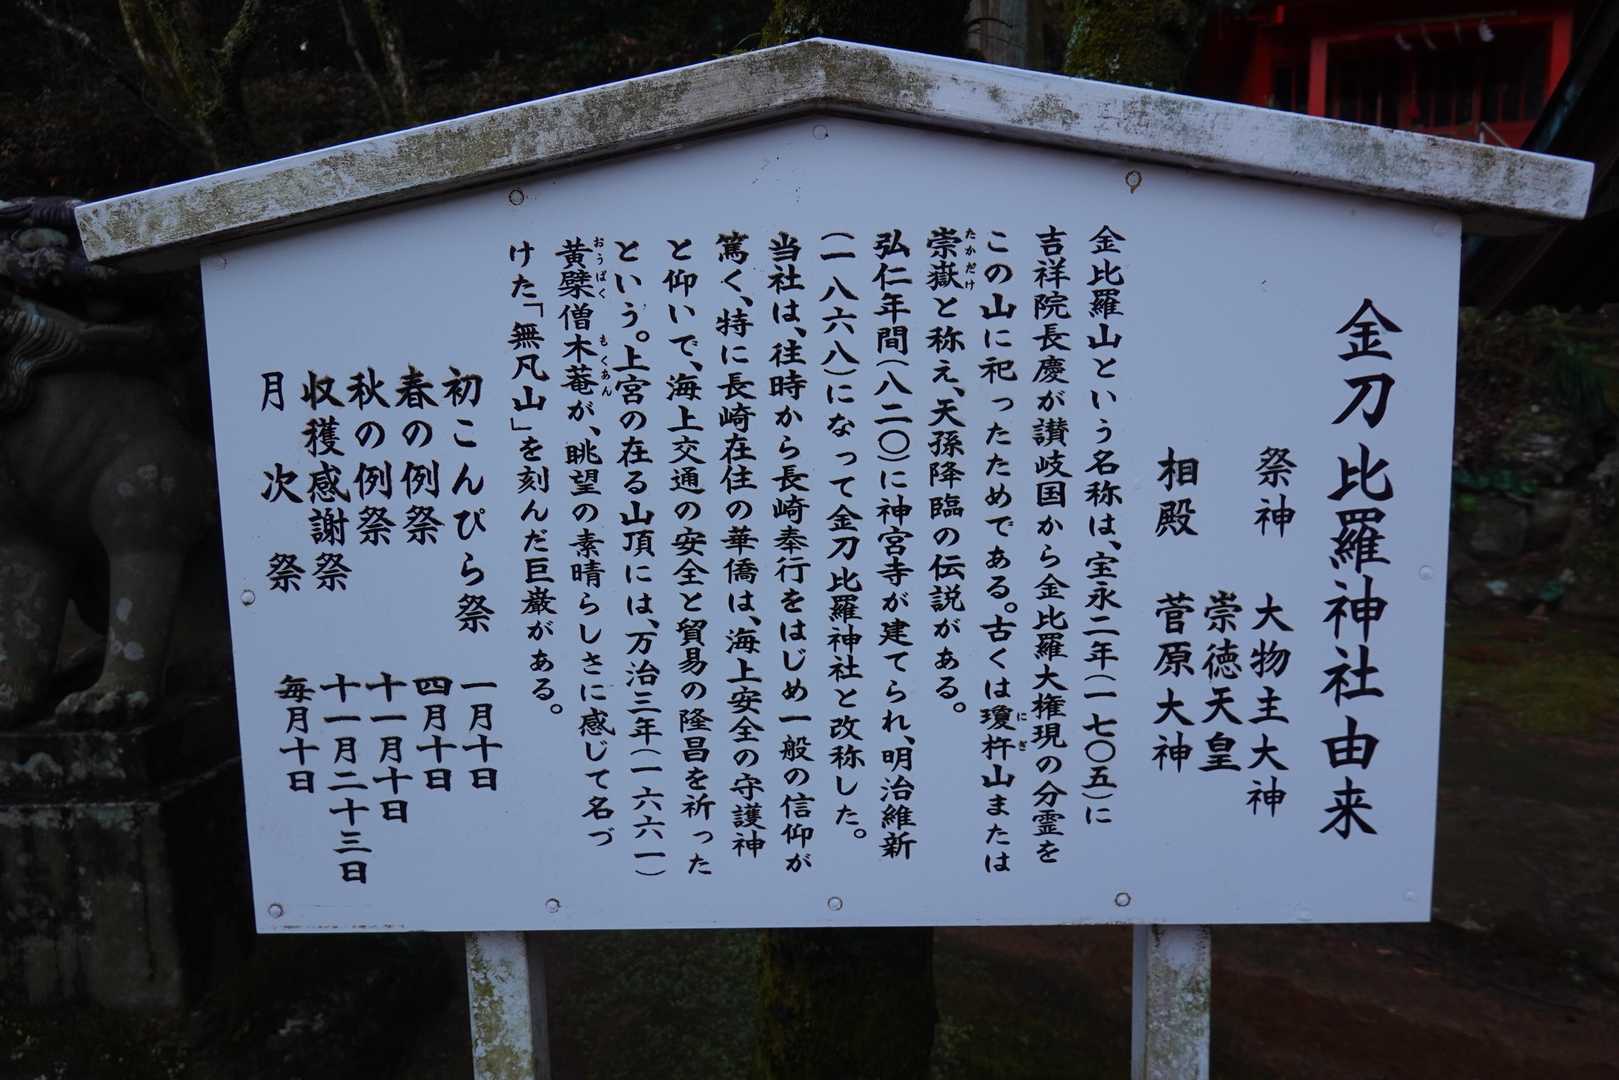 金刀比羅神社由来
祭神 大物主大神
崇徳天皇
相殿 菅原大神
金比羅山という名称は、宝永二年(一七〇五)に
吉祥院長慶が讃岐国から金比羅大権現の分霊を
この山に祀ったためである。古くは瓊杵山または
にぎ
崇嶽と称え、天孫降臨の伝説がある。
たかだけ
弘仁年間(八二〇)に神宮寺が建てられ、明治維新
(一八六八)になって金刀比羅神社と改称した。
当社は、往時から長崎奉行をはじめ一般の信仰が
篤く、特に長崎在住の華僑は、海上安全の守護神
と仰いで、海上交通の安全と貿易の隆昌を祈った
という。上宮の在る山頂には、万治三年(一六六一)
黄檗僧木菴が、眺望の素晴らしさに感じて名づ
おうばく もくあん
けた「無凡山」を刻んだ巨巌がある。
初こんぴら祭 一月十日
春の例祭 四月十日
秋の例祭 十一月十日
収穫感謝祭 十一月二十三日
月次祭 毎月十日